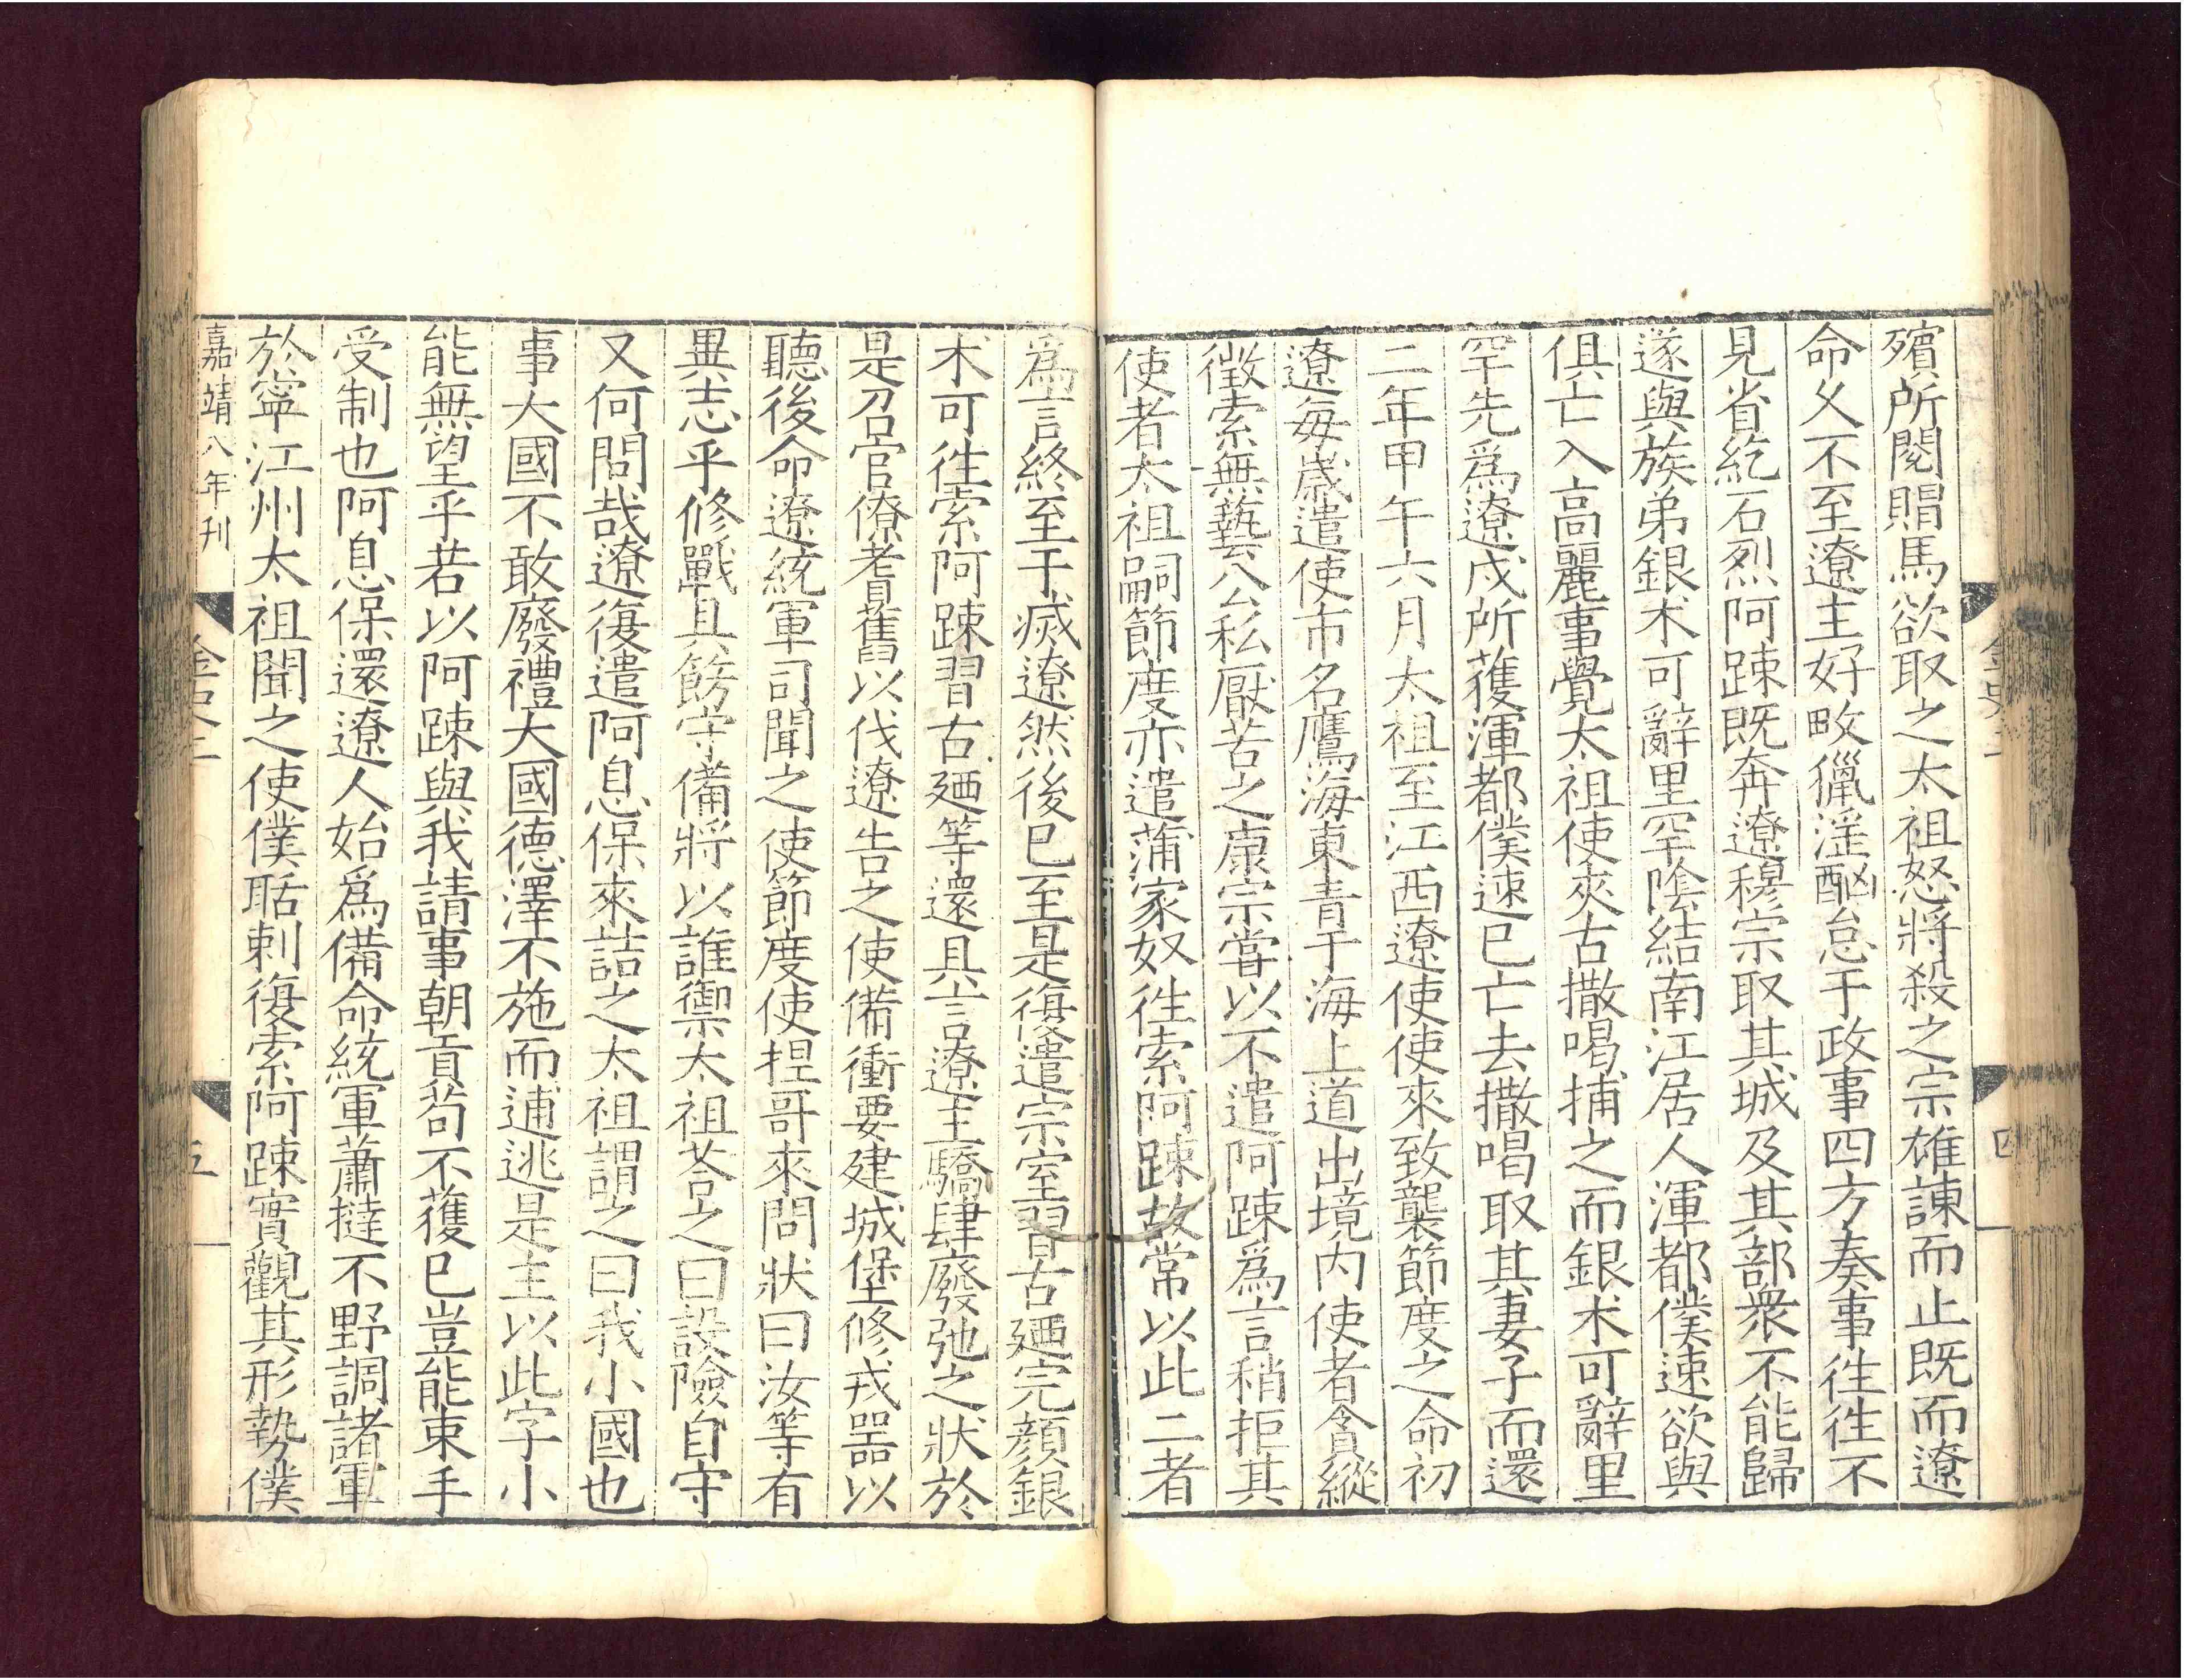 殯所閱賵馬欲取之太祖怒將殺之宗雄諫而止既而遼
命久不至遼主好畋獵淫酗怠于政事四方奏事往往不
見省紇石烈阿踈既奔遼穆宗取其城及其部衆不能歸
遂與族弟銀术可辭里罕陰結南江居人渾都僕速欲與
俱亡入高麗事覺太祖使夾古撒喝捕之而銀术可辭里
罕先爲遼戍所獲渾都僕速已亡去撒喝取其妻子而還
二年甲午六月太祖至江西遼使使來致襲節度之命初
遼每歲遣使市名鷹海東青于海上道出境内使者貪縱
徵索無藝公私厭苦之康宗嘗以不遣阿踈爲言稍拒其
使者太祖嗣節度亦遣蒲家奴往索阿踈故常以此二者
爲言終至于滅遼然後已至是復遣宗室習古廼完顔銀
术可往索阿踈習古廼等還具言遼主驕肆廢弛之狀於
是召官僚耆舊以伐遼告之使備衝要建城堡修戎器以
聽後命遼統軍司聞之使節度使捏哥來問狀曰汝等有
異志乎修戰具飭守備將以誰禦太祖荅之曰設險自守
又何問哉遼復遣阿息保來詰之太祖謂之曰我小國也
事大國不敢廢禮大國德澤不施而逋逃是主以此字小
能無望乎若以阿踈與我請事朝貢苟不獲已豈能束手
受制也阿息保還遼人始爲備命統軍蕭撻不野調諸軍
於寧江州太祖聞之使僕聒剌復索阿踈實觀其形勢僕
嘉靖八年刊
五
四